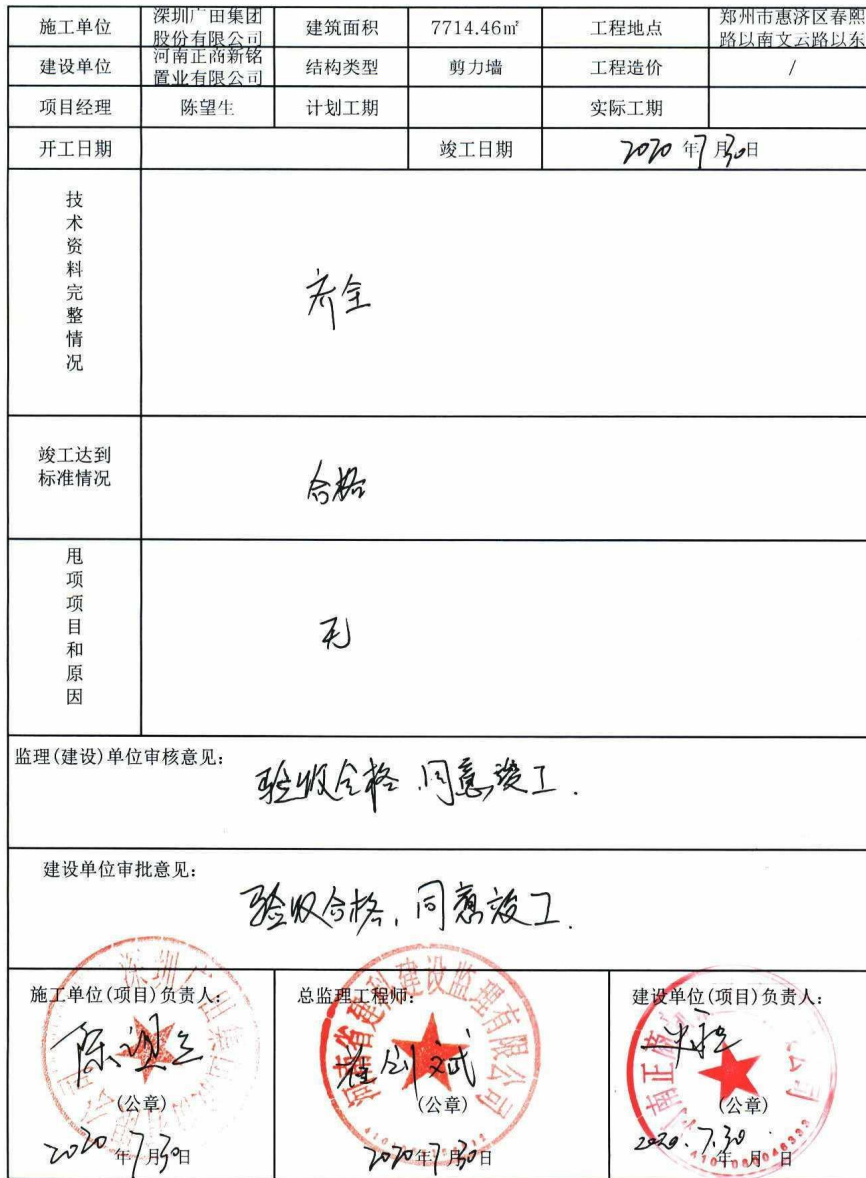 施工单位
深圳广田集团
股份有限公司
建筑面积
7714.46㎡
工程地点
郑州市惠济区春熙
路以南文云路以东
建设单位
河南正商新铭
置业有限公司
结构类型
剪力墙
工程造价
/
项目经理
陈望生
计划工期
实际工期
开工日期
竣工日期
2020年7月30日
技术资料完整情况
齐全
竣工达到
标准情况
合格
甩项项目和原因
无
监理(建设)单位审核意见:
验收合格 同意竣工.
建设单位审批意见:
验收合格,同意竣工.
施工单位(项目)负责人:
陈望生
(公章)
2020年7月30日
总监理工程师:
河南省建科建设监理有限公司
(公章)
2020年7月30日
建设单位(项目)负责人:
(公章)
2020.7.30
年 月 日